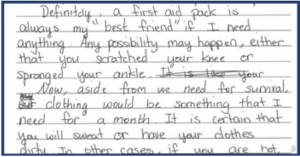 Definitely, a first aid pack is
always my "best friend" if I need
anything. Any possibility may happen, either
that you scratched your knee or
Spronged your ankle. It is like your
Now, aside from we need for survival,
clothing would be something that I
need for a month. It is certain that
you will sweat or have your clothes
dirty. In other cases, if you are hot,